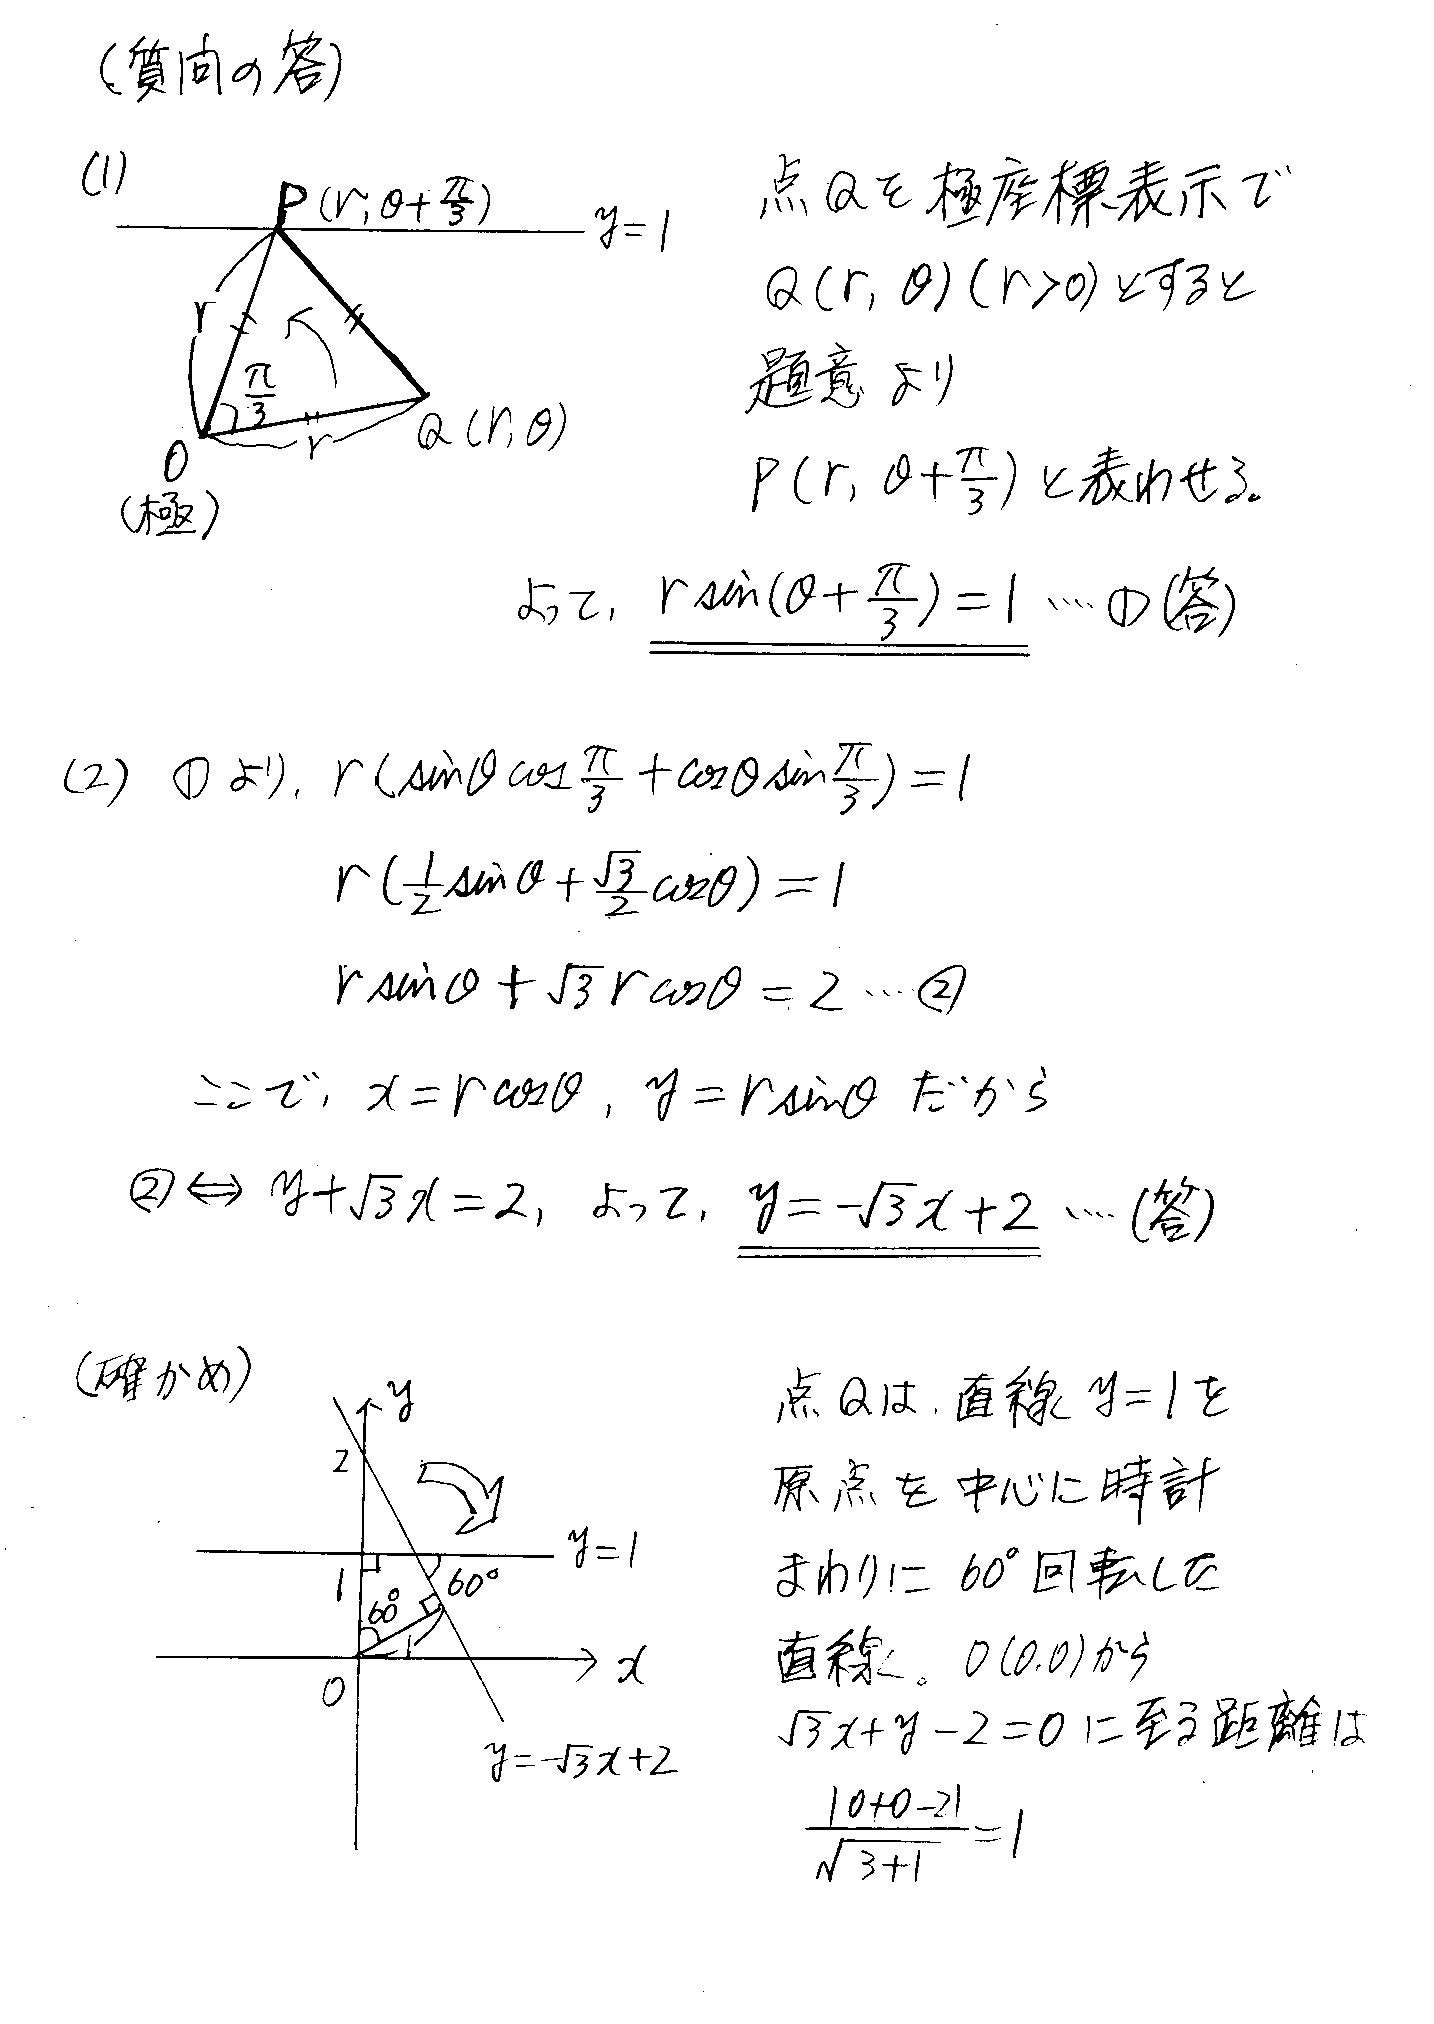 (質問の答)
(1)
P(r, θ+π/3)
y=1
r
π/3
r
Q(r, θ)
O
(極)
点Qを極座標表示で
Q(r, θ)(r>0)とすると
題意より
P(r, θ+π/3)と表わせる。
よって, r sin(θ+π/3)=1 ……①(答)
(2) ①より, r(sinθcosπ/3+cosθsinπ/3)=1
r(1/2 sinθ+√3/2 cosθ)=1
r sinθ+√3 r cosθ=2 …②
ここで, x=r cosθ, y=r sinθ だから
②⇔ y+√3x=2, よって, y=-√3x+2 ……(答)
(確かめ)
y
2
y=1
1
60°
60°
1
x
O
y=-√3x+2
点Qは, 直線y=1を
原点を中心に時計
まわりに60°回転した
直線。O(0,0)から
√3x+y-2=0に至る距離は
|0+0-2|/√3+1=1